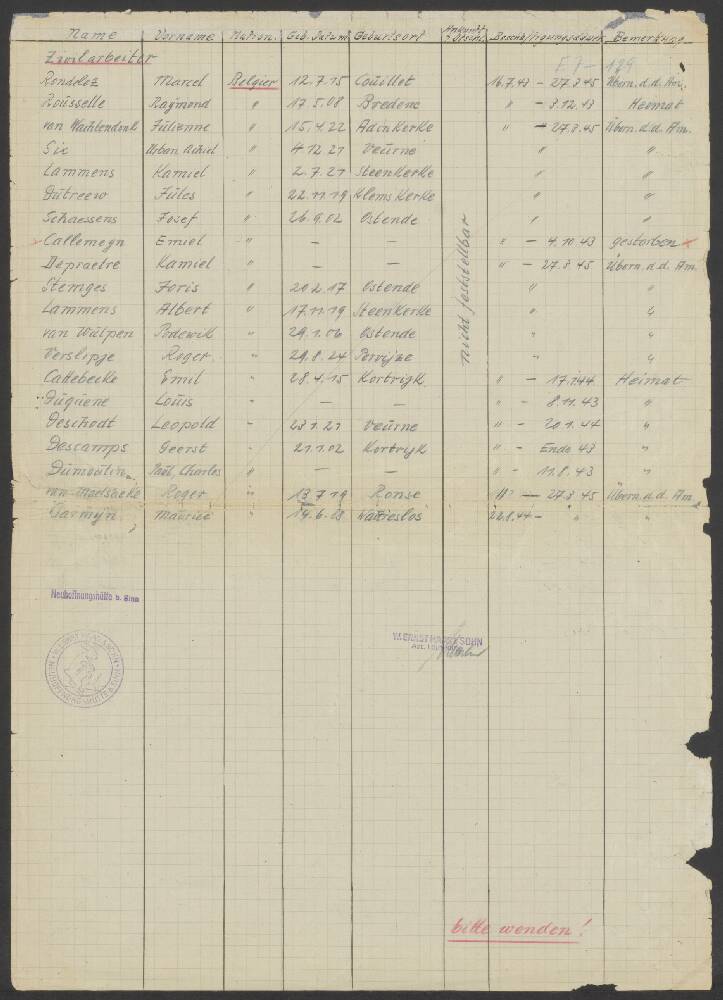 Name Vorname Nation. Geb. Datum Geburtsort Beschäftigungsdauer Bemerkung
Zivilarbeiter
Rondeloz Marcel Belgier 12.7.15 Coüillet 16.7.43 – 27.3.45 Übern. d. d. Am.
Rousselle Raymond " 17.5.08 Bredene " – 3.12.43 Heimat
van Wachtendonk Jülienne " 15.4.22 Adinkerke " – 27.3.45 Übern. d. d. Am.
Six Urban Achiel " 4.12.21 Veürne " "
Lammens Kamiel " 2.7.21 Steenkerke " "
Dütreeuw Jüles " 22.11.19 Klemskerke " "
Schaessens Josef " 26.9.02 Ostende " "
Callemeyn Emiel " – – " – 4.10.43 gestorben
Depraetre Kamiel " – – " – 27.3.45 Übern. d. d. Am.
Stemges Joris " 20.2.17 Ostende " "
Lammens Albert " 17.11.19 Steenkerke " "
van Wülpen Lodewik " 29.1.06 Ostende " "
Verslipje Roger " 29.8.24 Pervijze " "
Cattebecke Emil " 28.4.15 Kortrijk " – 17.1.44 Heimat
Düquene Loüis " – – " – 8.11.43 "
Deschodt Leopold " 23.1.21 Veürne " – 20.1.44 "
Descamps Geerst " 21.1.02 Kortrijk " – Ende 43 "
Dümoülin Paül, Charles " – – " – 11.8.43 "
van Maelsaeke Roger " 13.7.19 Ronse " – 27.3.45 Übern. d. d. Am.
Garmÿn Maürice " 14.6.23 22.8.44 – " "
nicht feststellbar
Neuhoffnungshütte b. Sinn
W. ERNST HAAS & SOHN
W. ERNST HAAS & SOHN
NEUHOFFNUNGSHÜTTE b. SINN
bitte wenden!